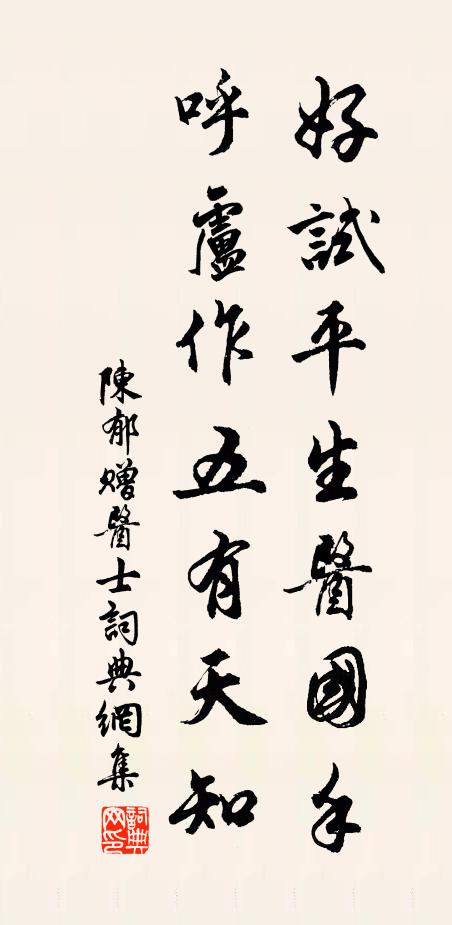 好試平生醫國手
呼盧作五有天知
陳郁贈醫士詞典網集
詞典网印